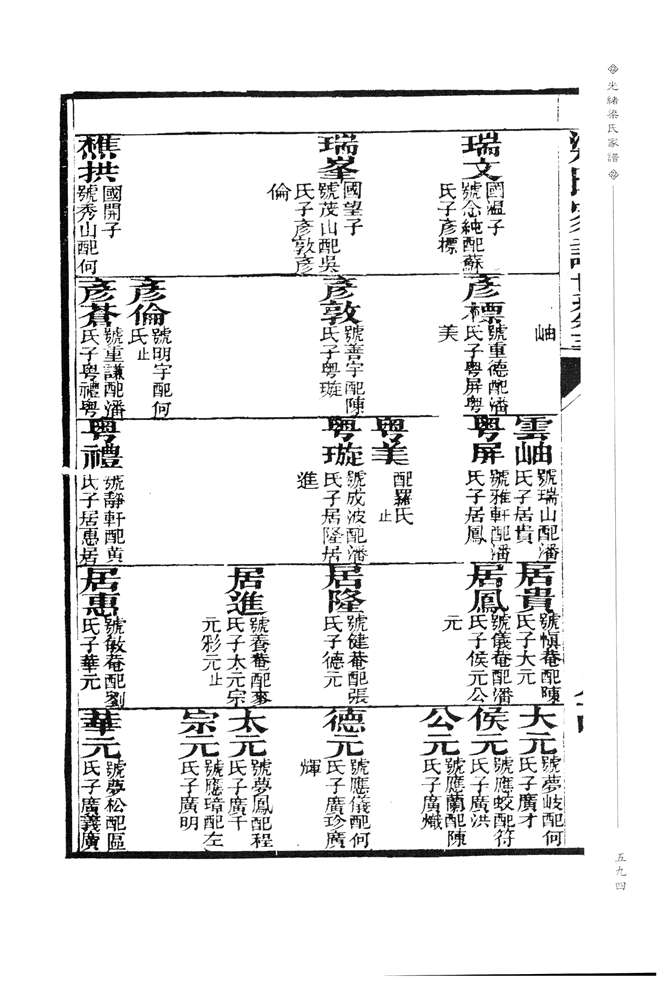 光緒梁氏家譜
五九四
瑞文
國溫子
號念純配蘇
氏子彥標
瑞峯
國望子
號茂山配吳
氏子彥敦彥
倫
樵拱
國開子
號秀山配何
岫
彥標
號重德配潘
氏子粤屏粤
美
彥敦
號善宇配陳
氏子粤璇
彥倫
號明宇配何
氏止
彥蒼
號重謙配潘
氏子粤禮粤
雲岫
號瑞山配潘
氏子居貴
粤屏
號雅軒配潘
氏子居鳳
粤美
配羅氏
止
粤璇
號成波配潘
氏子居隆居
進
粤禮
號靜軒配黃
氏子居惠居
居貴
號慎菴配陳
氏子大元
居鳳
號儀菴配潘
氏子侯元公
元
居隆
號健菴配張
氏子德元
居進
號養菴配麥
氏子太元宗
元彩元止
居惠
號敏菴配劉
氏子華元
大元
號夢岐配何
氏子廣才
侯元
號應蛟配符
氏子廣洪
公元
號應蘭配陳
氏子廣熾
德元
號應儀配何
氏子廣珍廣
輝
太元
號夢鳳配程
氏子廣千
宗元
號應璋配左
氏子廣明
華元
號夢松配區
氏子廣義廣